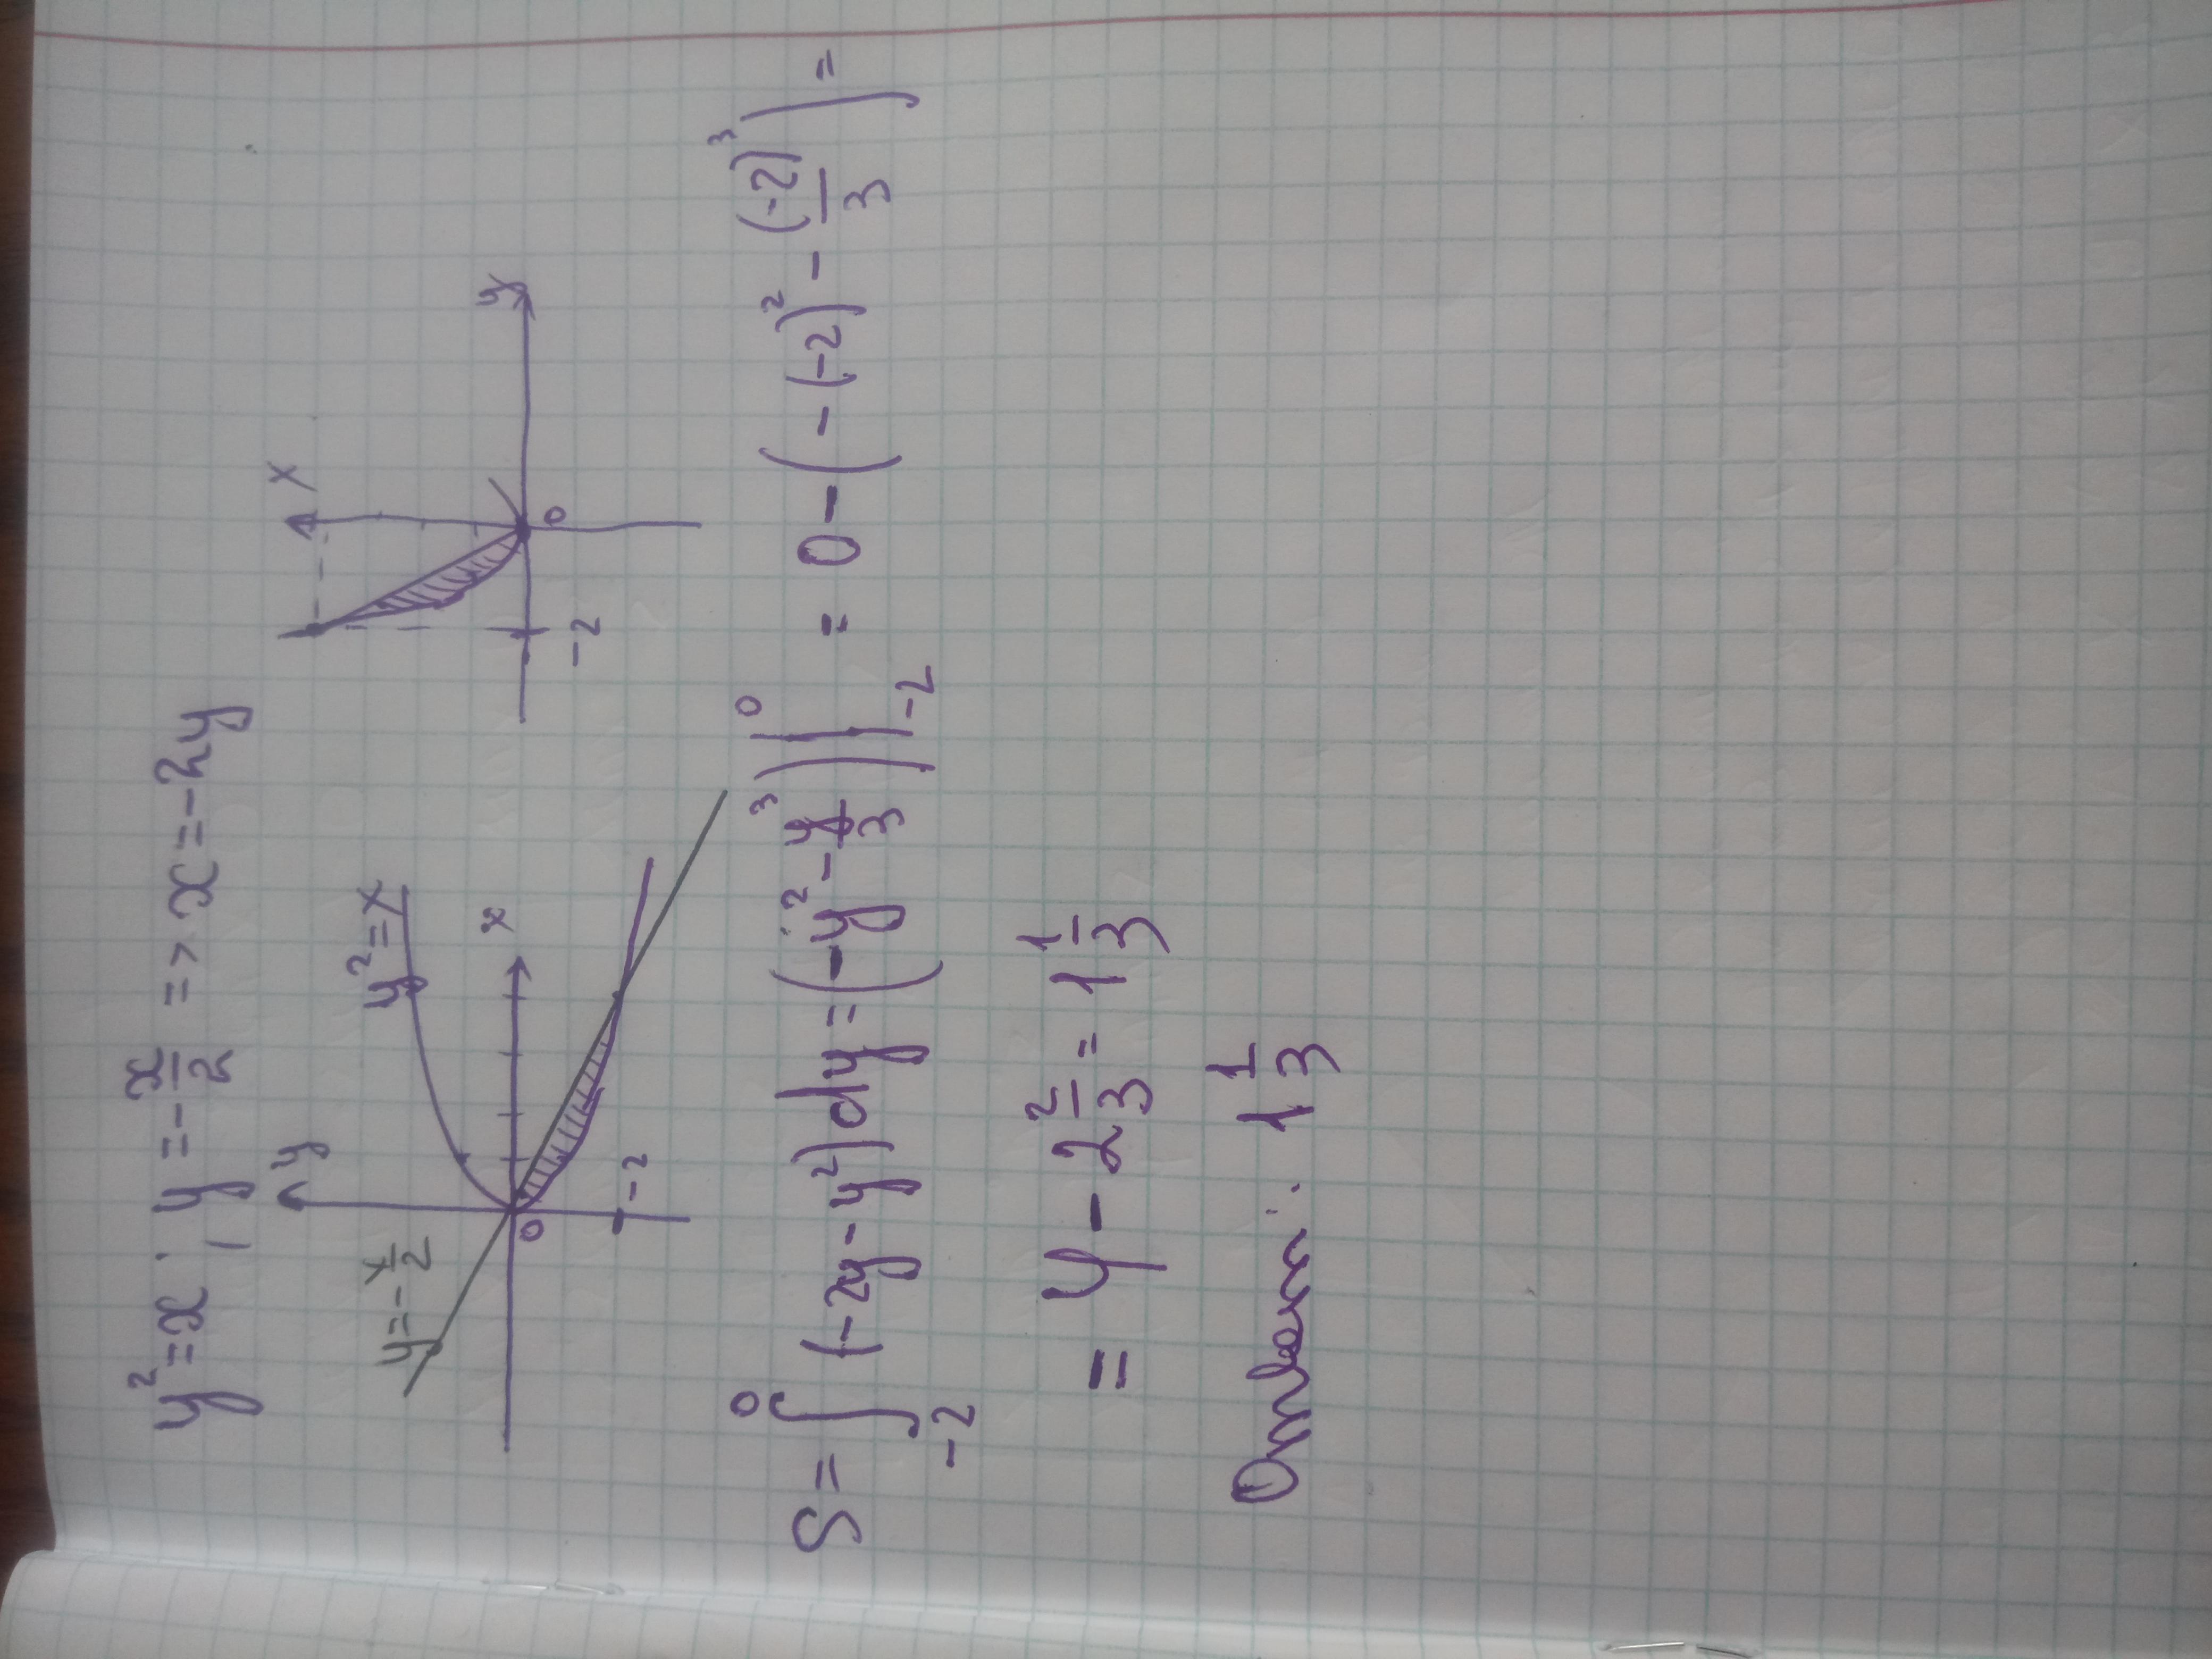 y² = x ; y = -x/2 => x = -2y
y
y = -x/2
y² = x
x
0
-2
x
y
0
-2
S = ∫₋₂⁰ (-2y - y²) dy = (-y² - y³/3) |₋₂⁰ = 0 - (-(-2)² - (-2)³/3) =
= 4 - 2 2/3 = 1 1/3
Ответ: 1 1/3